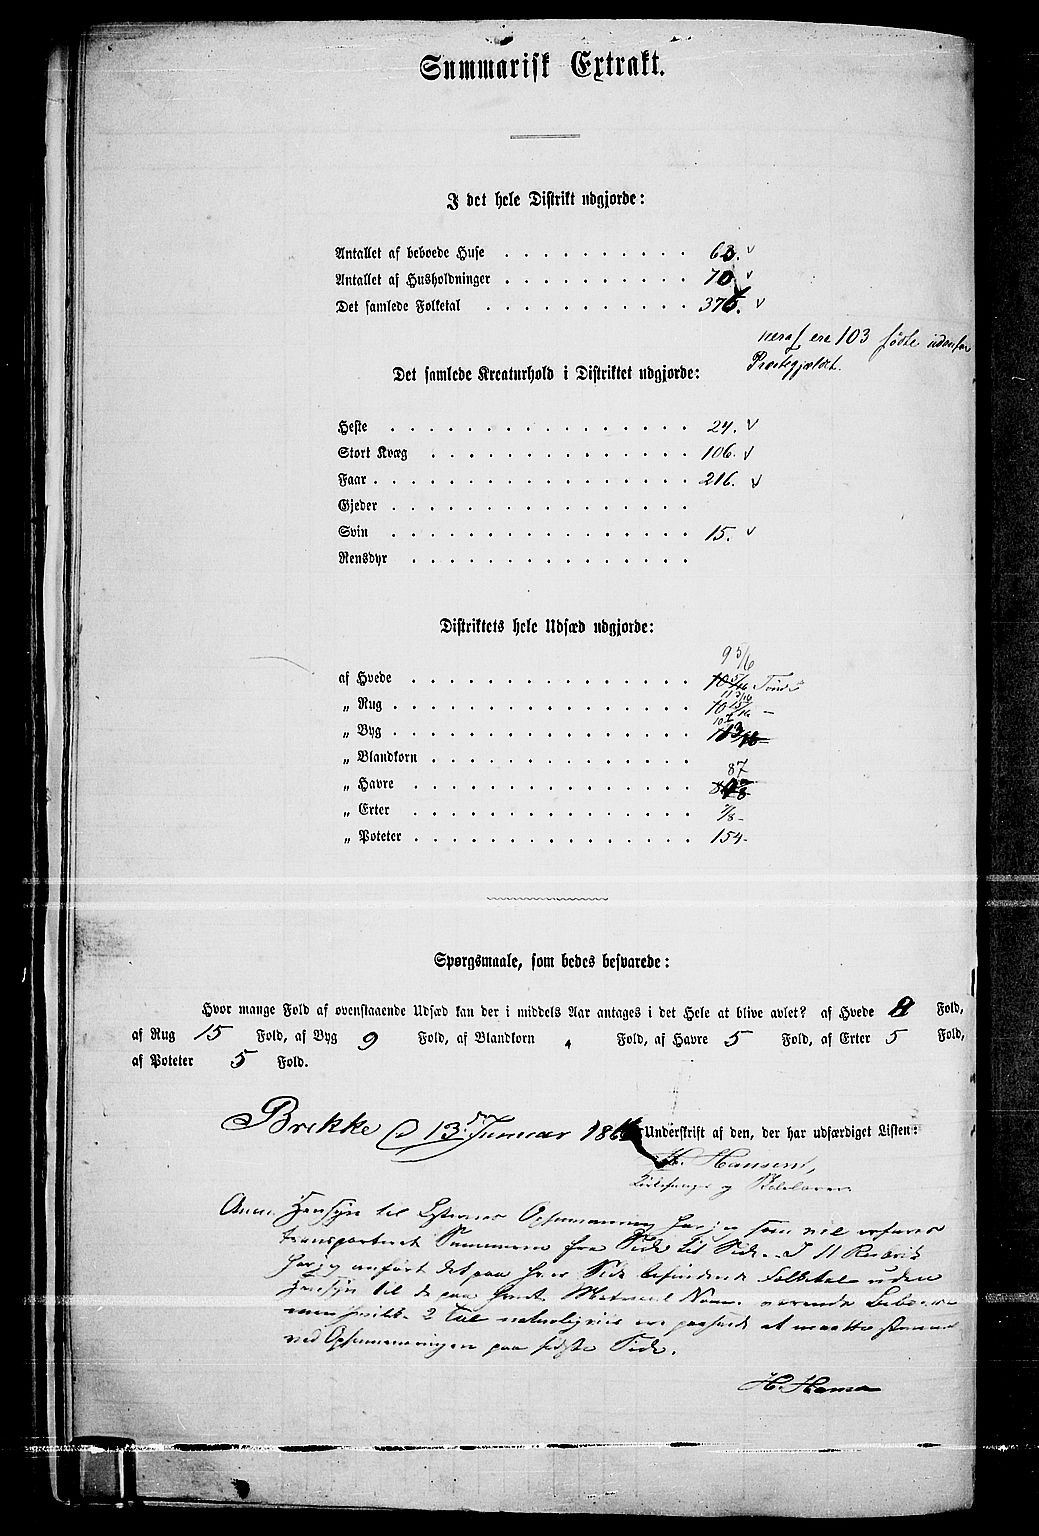 Summarisk Extrakt.
I det hele Distrikt udgjorde:
Antallet af beboede Huse . . . . . . . . . . 63. v
Antallet af Husholdninger . . . . . . . . . . 70 v
Det samlede Folketal . . . . . . . . . . . 376. v
heraf ere 103 fødte udenfor
Præstegjældet.
Det samlede Kreaturhold i Distriktet udgjorde:
Heste . . . . . . . . . . . . . . . . 24. v
Stort Kvæg . . . . . . . . . . . . . . 106. v
Faar . . . . . . . . . . . . . . . . . 216. v
Gjeder . . . . . . . . . . . . . . . .
Svin . . . . . . . . . . . . . . . . 15. v
Rensdyr . . . . . . . . . . . . . . .
Distriktets hele Udsæd udgjorde:
9 5/16
af Hvede . . . . . . . . . . . . . . . 10 5/16
11 3/16
„ Rug . . . . . . . . . . . . . . . . 10 15/16 –
„ Byg . . . . . . . . . . . . . . . .
„ Blandkorn . . . . . . . . . . . . . .
87
„ Havre . . . . . . . . . . . . . . .
„ Erter . . . . . . . . . . . . . . . 7/8 –
„ Poteter . . . . . . . . . . . . . . . 154 –
Spørgsmaale, som bedes besvarede:
Hvor mange Fold af ovenstaaende Udsæd kan der i middels Aar antages i det Hele at blive avlet? af Hvede Fold,
af Rug 15 Fold, af Byg 9 Fold, af Blandkorn Fold, af Havre 5 Fold, af Erter 5 Fold,
af Poteter 5 Fold.
Brekke d 13 Januar 1866 Underskrift af den, der har udfærdiget Listen:
H. Hansen,
Kirkesanger og Skolelærer.
Anm. Hensyn til Listernes Opsummering har jeg som vil erfares
transporteret Summerne fra Side til Side. I 11 Rubrik
har jeg anført det paa hver Side befindende Folketal uden
Hensyn til de paa Matricul Numr. værende
2 Tal
ved Opsummeringen paa sidste Side.
H. Hansen